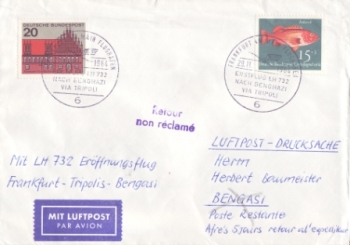 DEUTSCHE BUNDESPOST
20
FRANKFURT AM FLUGHAFEN
1964
ERSTFLUG LH 732
NACH BENGHAZI
VIA TRIPOLI
6
15+5
FRANKFURT
ERSTFLUG LH 732
NACH BENGHAZI
VIA TRIPOLI
6
Retour
non réclamé
LUFTPOST-DRUCKSACHE
Mit LH 732 Eröffnungsflug
Herrn
Frankfurt-Tripolis-Bengasi
Herbert Baumeister
BENGASI
MIT LUFTPOST
PAR AVION
Poste Restante
Après 5 jours retour à l'expéditeur